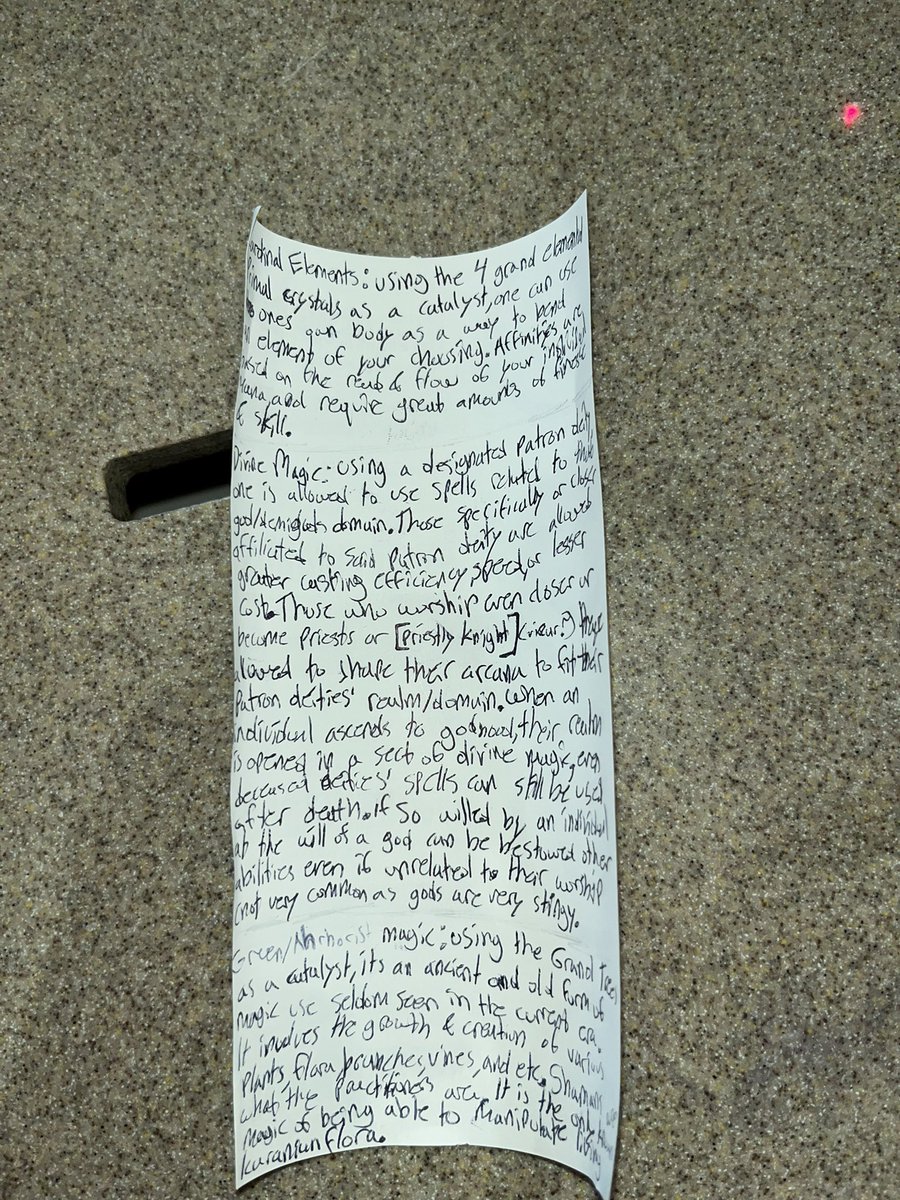 Elements: using the 4 grand elemental
crystals as a catalyst, one can use
ones own body as a way to bend
element of your choosing. Affinities are
based on the read & flow of your individual
and require great amounts of finesse
& skill.
Divine Magic: using a designated patron deity
one is allowed to use spells related to that
god/demigods domain. Those specifically or closer
affiliated to said patron deity are allowed
greater casting efficiency, speed, or lesser
cost. Those who worship even closer or
become priests or [priestly knight]
allowed to shape their arcana to fit their
patron deities' realm/domain. When an
individual ascends to godhood, their realm
is opened in a sect of divine magic, even
deceased deities' spells can still be used
after death. If so willed by an individual
at the will of a god can be bestowed other
abilities even if unrelated to their worship
(not very common as gods are very stingy.
Green/ magic: using the Grand Trees
as a catalyst, its an ancient and old form of
magic use seldom seen in the current era.
It involves the growth & creation of various
plants, flora, branches, vines, and etc. Shamans
what the practitioners are. It is the only
magic of being able to manipulate living
kuranian flora.